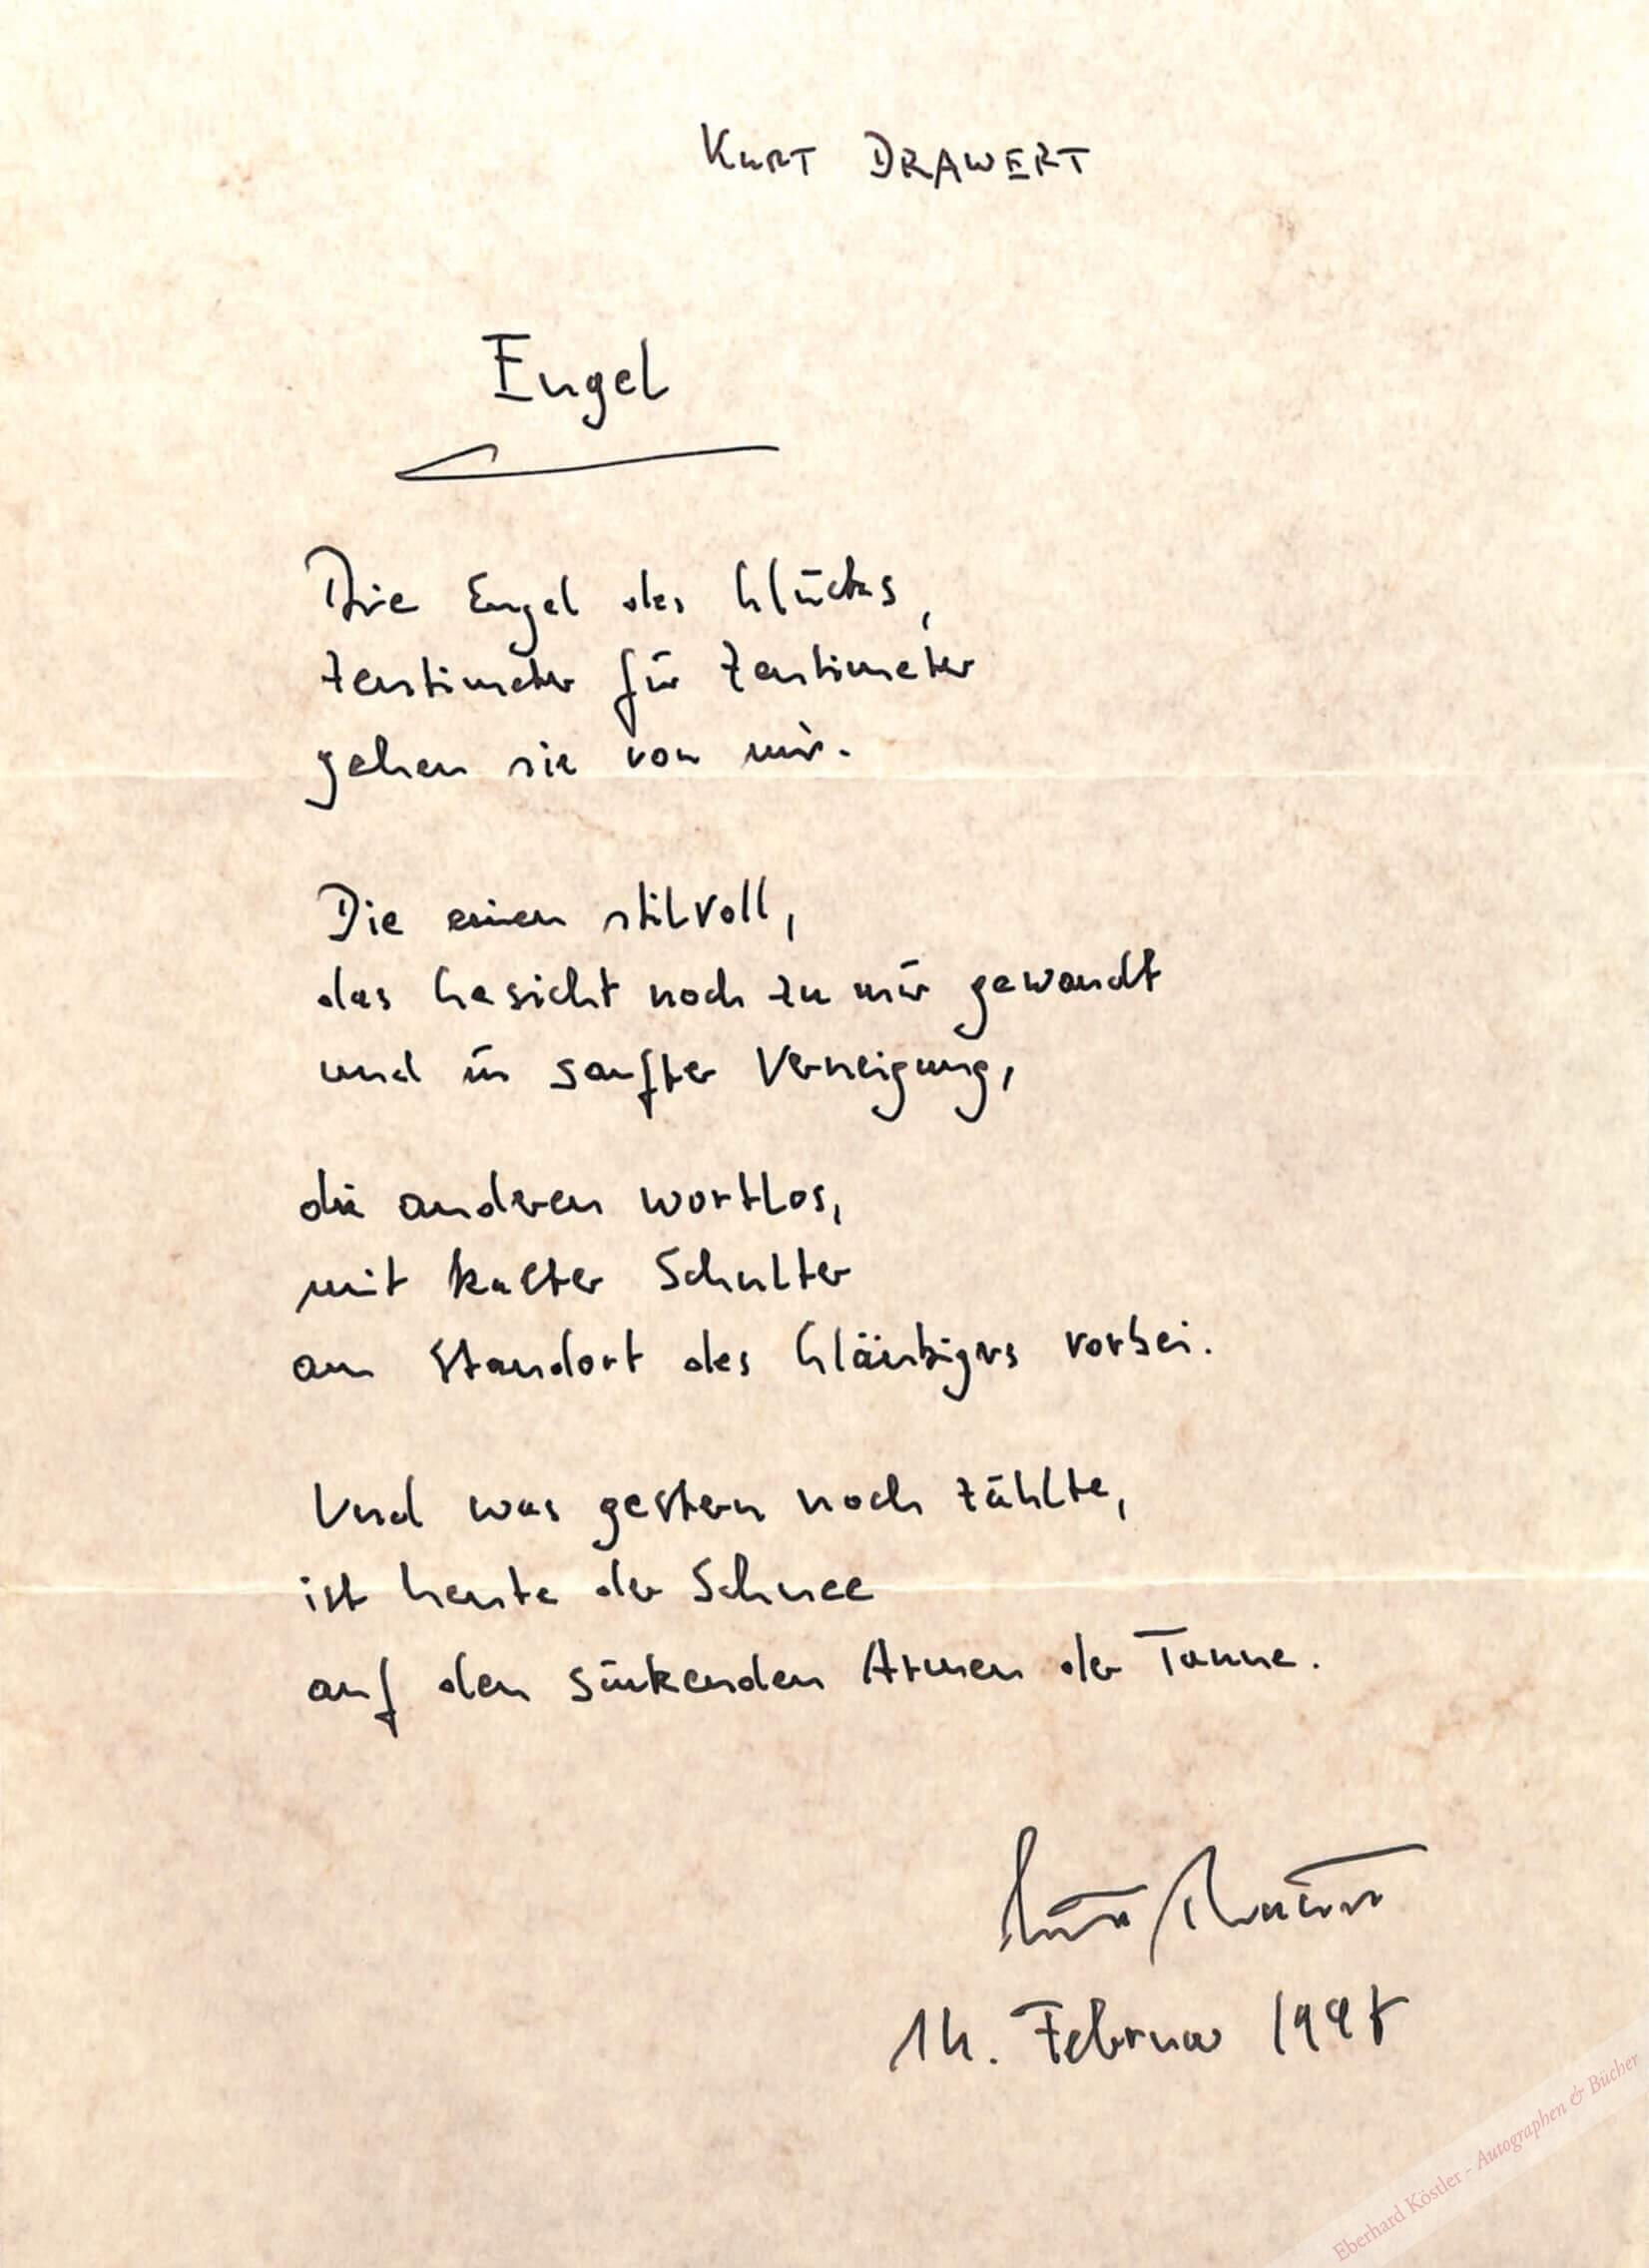 KURT DRAWERT
Engel
Die Engel des Glücks,
Zentimeter für Zentimeter
gehen sie von mir.
Die einen stilvoll,
das Gesicht noch zu mir gewandt
und in sanfter Verneigung,
die anderen wortlos,
mit kalter Schulter
am Standort des Gläubigers vorbei.
Und was gestern noch zählte,
ist heute der Schnee
auf den sinkenden Armen der Tanne.
Kurt Drawert
14. Februar
Eberhard Köstler - Autographen & Bücher